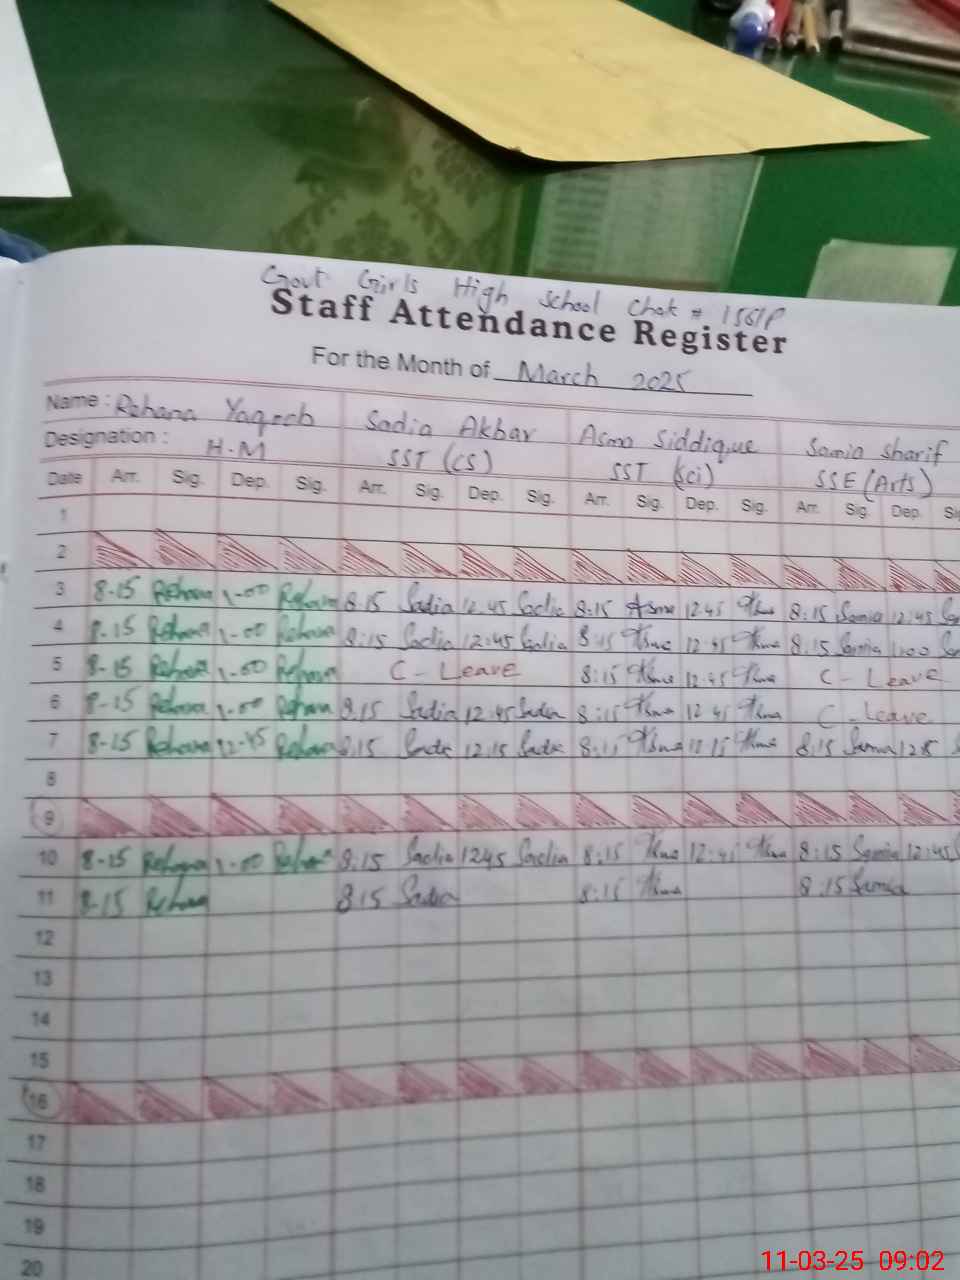 Govt Girls High School Chak # 156/P
Staff Attendance Register
For the Month of March 2025
Name : Rehana Yaqoob Sadia Akbar Asma Siddique Samia Sharif
Designation : H.M SST (CS) SST (Sci) SSE (Arts)
Date Arr. Sig. Dep. Sig. Arr. Sig. Dep. Sig. Arr. Sig. Dep. Sig. Arr. Sig. Dep.
1
2
3 8-15 Rehana 1-00 Rehana 8:15 Sadia 12:45 Sadia 8:15 Asma 12:45 Asma 8:15 Samia 12:45
4 8-15 Rehana 1-00 Rehana 8:15 Sadia 12:45 Sadia 8:15 Asma 12:45 Asma 8:15 Samia 1:00
5 8-15 Rehana 1-00 Rehana C - Leave 8:15 Asma 12:45 Asma C - Leave
6 8-15 Rehana 1-00 Rehana 8:15 Sadia 12:45 Sadia 8:15 Asma 12:45 Asma C - Leave
7 8-15 Rehana 12-45 Rehana 8:15 Sadia 12:15 Sadia 8:15 Asma 12:15 Asma 8:15 Samia
8
9
10 8-15 Rehana 1-00 Rehana 8:15 Sadia 12:45 Sadia 8:15 Asma 12:45 Asma 8:15 Samia 12:45
11 8-15 Rehana 8:15 Sadia 8:15 Asma 8:15 Samia
12
13
14
15
16
17
18
19
20
11-03-25 09:02